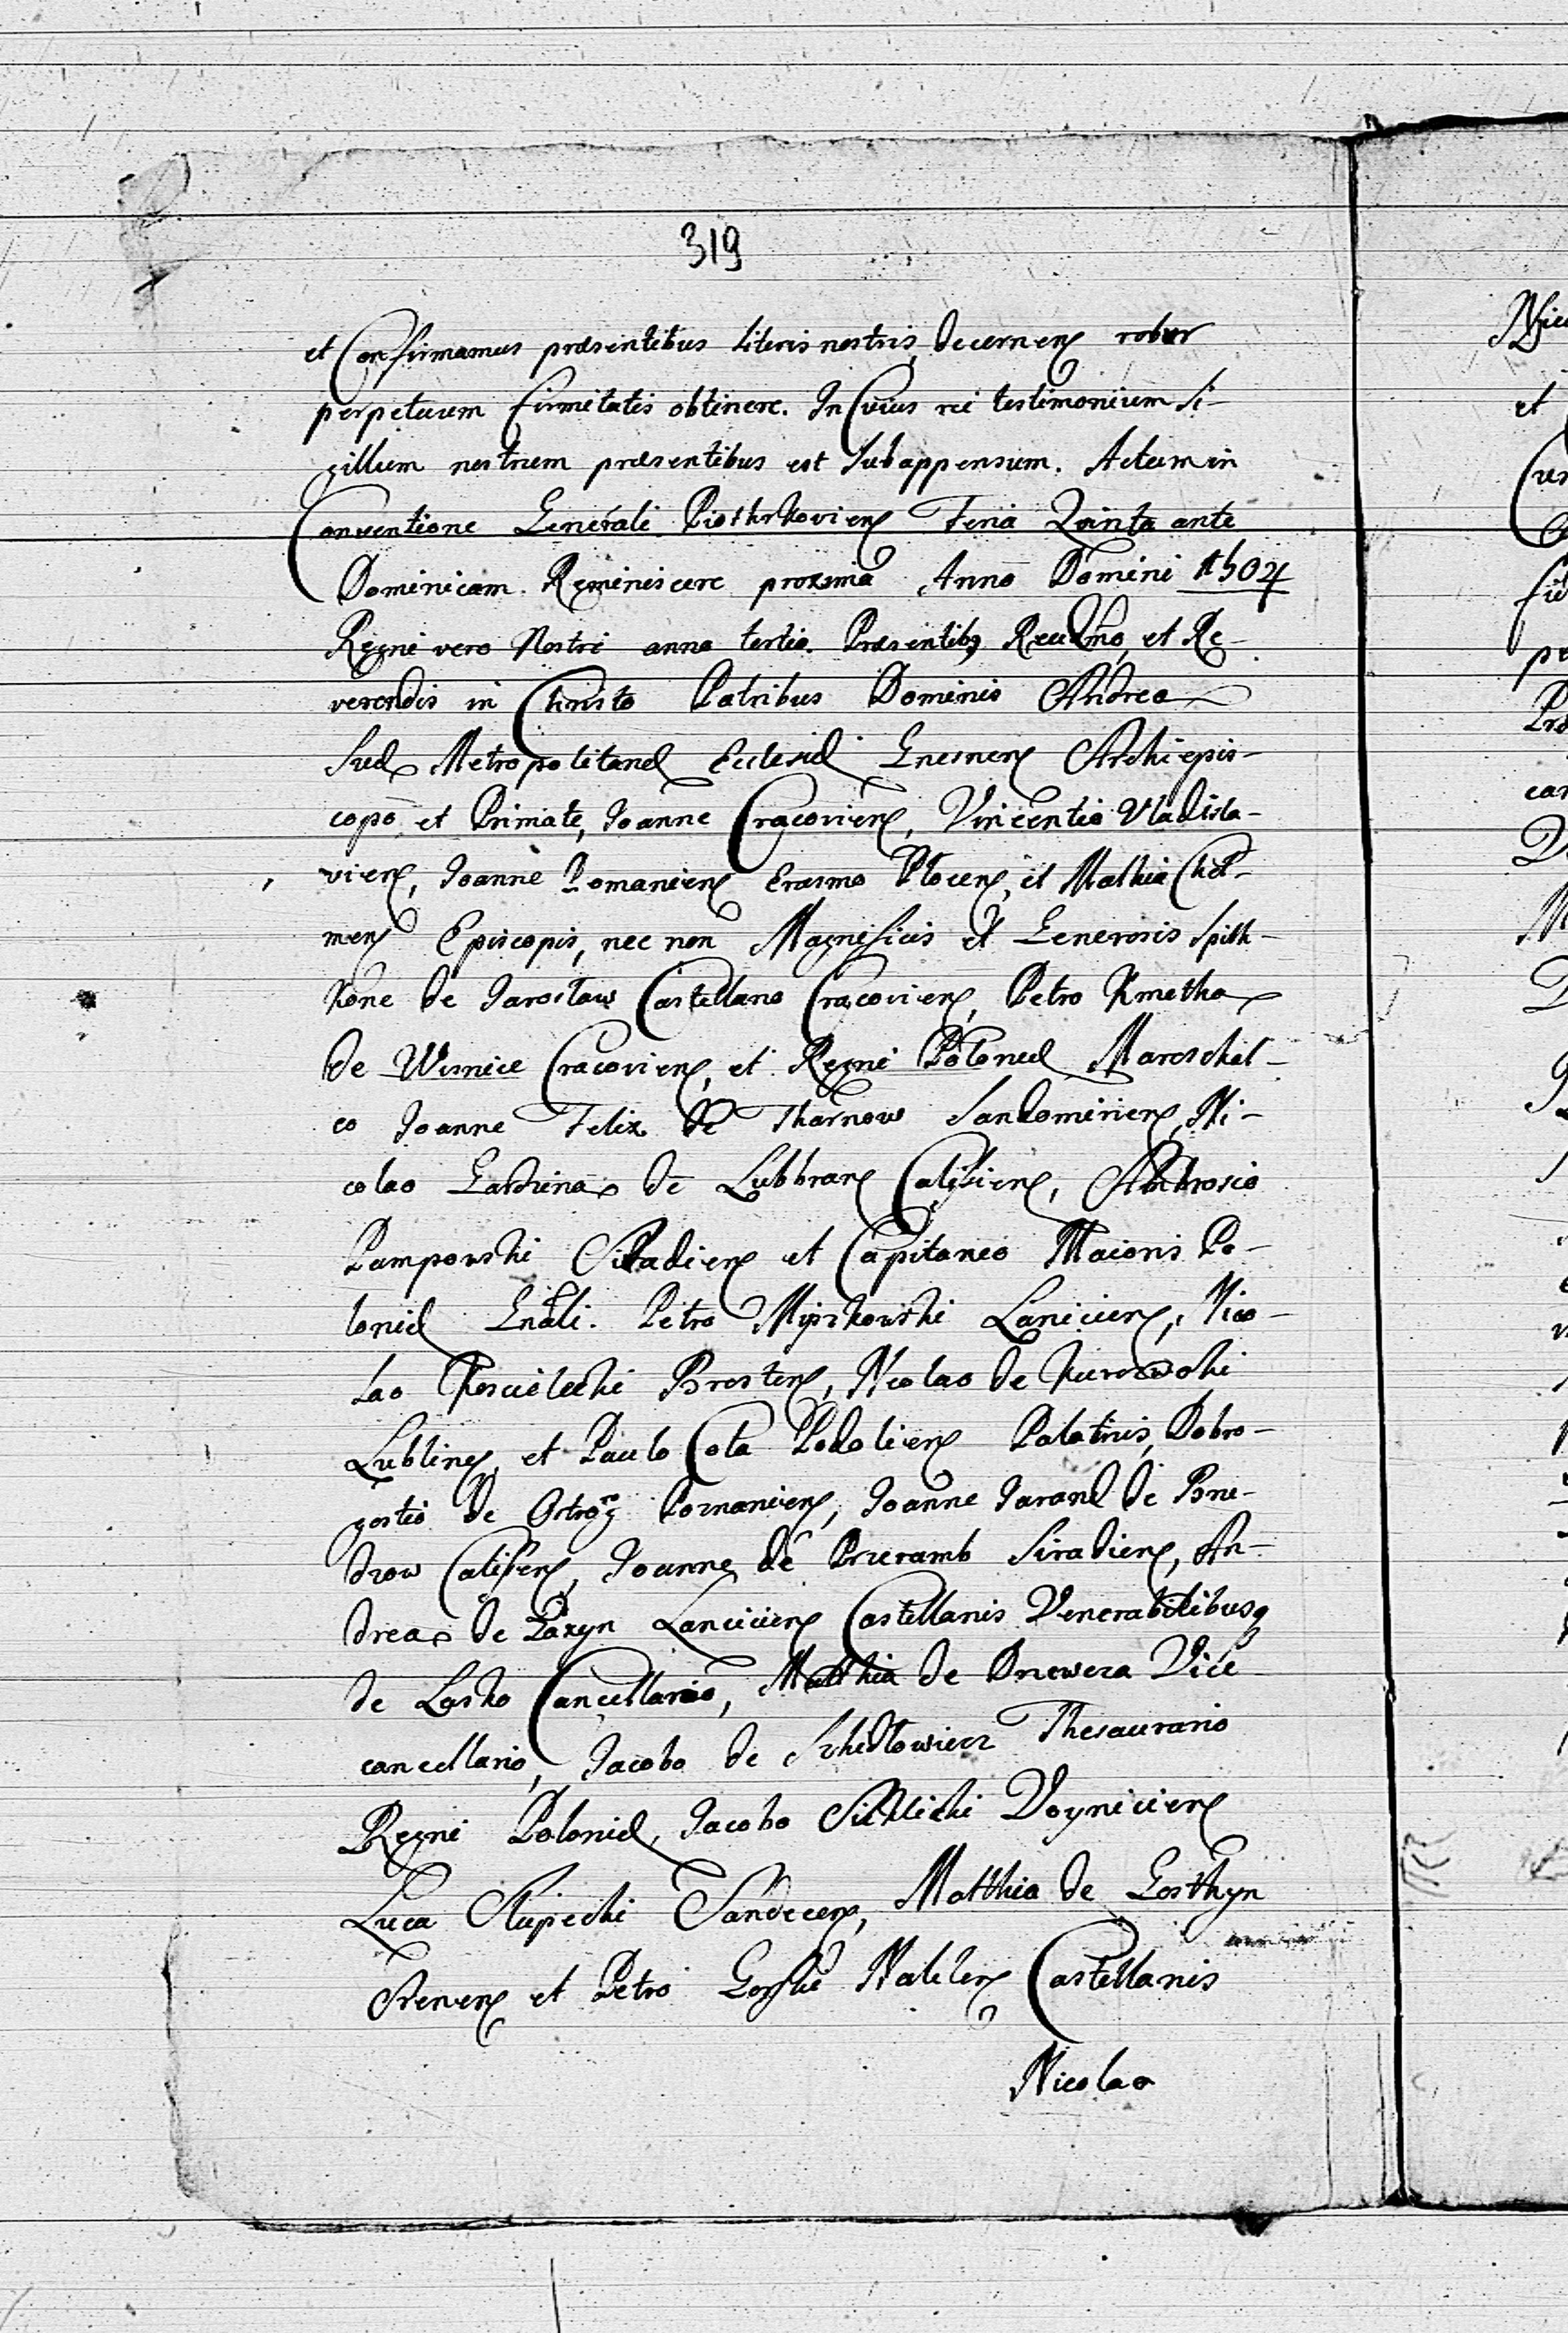 319
et Confirmamus præsentibus literis nostris, decernens robur
perpetuum firmitatis obtinere. In Cuius rei testimonium si-
gillum nostrum præsentibus est subappensum. Actum in
Conventione Generali Piothrkoviens Feria Quinta ante
Dominicam Reminiscere proxima Anno Domini 1504
Regni vero Nostri anno tertio. Præsentibq Reudmo, et Re-
verendis in Christo Patribus Dominis Andrea
Suæ Metropolitanæ Ecclesiæ Gnesnens Archiepis-
copo et Primate, Joanne Cracoviens, Vincentio Vladisla-
viens, Joanne Posnaniens Erasmo Plocens, et Mathia Chel-
mens Episcopis, nec non Magnificis et Generosis Spith-
kone de Jaroslaw Castellano Cracoviens, Petro Kmetha
de Wisnice Cracoviens, et Regni Poloniæ Marschal-
co Joanne Felix de Tharnow Sandomiriens, Ni-
colao Gardzina de Lubbrans Calisiens, Ambrosio
Pampowski Siradiens et Capitaneo Maioris Po-
loniæ Gnãli. Petro Mipzkowski Lanciciens, Nico-
lao Koscielecki Brestens, Nicolao de Kurozwoki
Lublinens, et Paulo Cola Podoliens Palatinis, Dobro-
gostio de Ostrog Poznaniens, Joanne Jarand de Bru-
dzow Calisiens, Joanne de Przeramb Siradiens, An-
drea de Laxyn Lanciciens Castellanis Venerabilibusq
de Lasko Cancellario, Matthia de Drzewcza Vice
cancellario, Jacobo de Szhidlowiecz Thesaurario
Regni Poloniæ, Jacobo Sieklicki Voyniciens
Luca Slupecki Sandecens, Matthia de Gosthyn
Sremens et Petro Gorski Naklens Castellanis
Nicolao